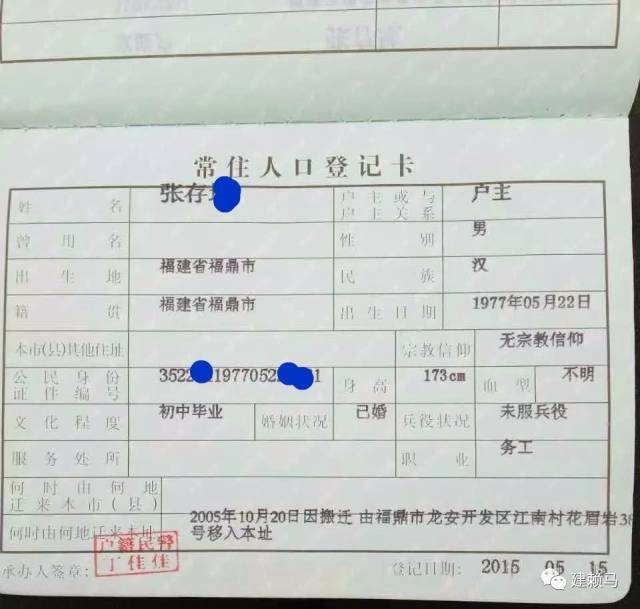 常住人口登记卡
姓名 张存 户主或与户主关系 户主
曾用名 性别 男
出生地 福建省福鼎市 民族 汉
籍贯 福建省福鼎市 出生日期 1977年05月22日
本市(县)其他住址 宗教信仰 无宗教信仰
公民身份证件编号 3522 1977052 1 身高 173cm 血型 不明
文化程度 初中毕业 婚姻状况 已婚 兵役状况 未服兵役
服务处所 职业 务工
何时由何地迁来本市(县)
何时由何地迁来本址 2005年10月20日因搬迁 由福鼎市龙安开发区江南村花眉岩38
号移入本址
户籍民警
丁佳佳
承办人签章: 登记日期: 2015 05 15
建赖马